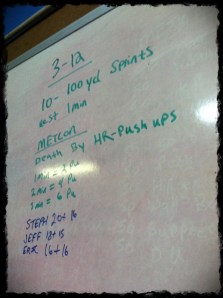 3-12
10- 100yd Sprints
Rest 1min
METCON
Death By HR-Push UPS
1min = 2 Pu
2min = 4 Pu
3min = 6 Pu
STEPH 20+16
JEFF 18+15
16+16